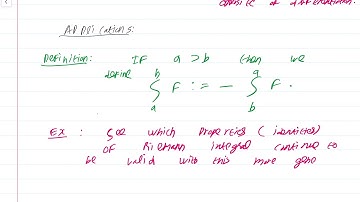 opposite of differentiation.
Applications:
Definition: If a > b then we
define ∫_a^b F := - ∫_b^a F.
Ex: See which properties (identities)
of Riemann integral continue to
be valid with this more gene